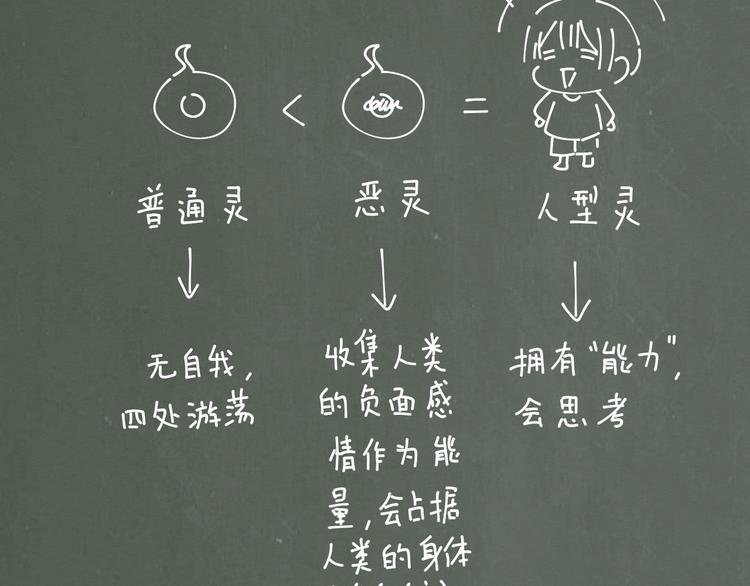 < =
普通灵 恶灵 人型灵
无自我,
四处游荡
收集人类
的负面感
情作为能
量,会占据
人类的身体
拥有“能力”,
会思考